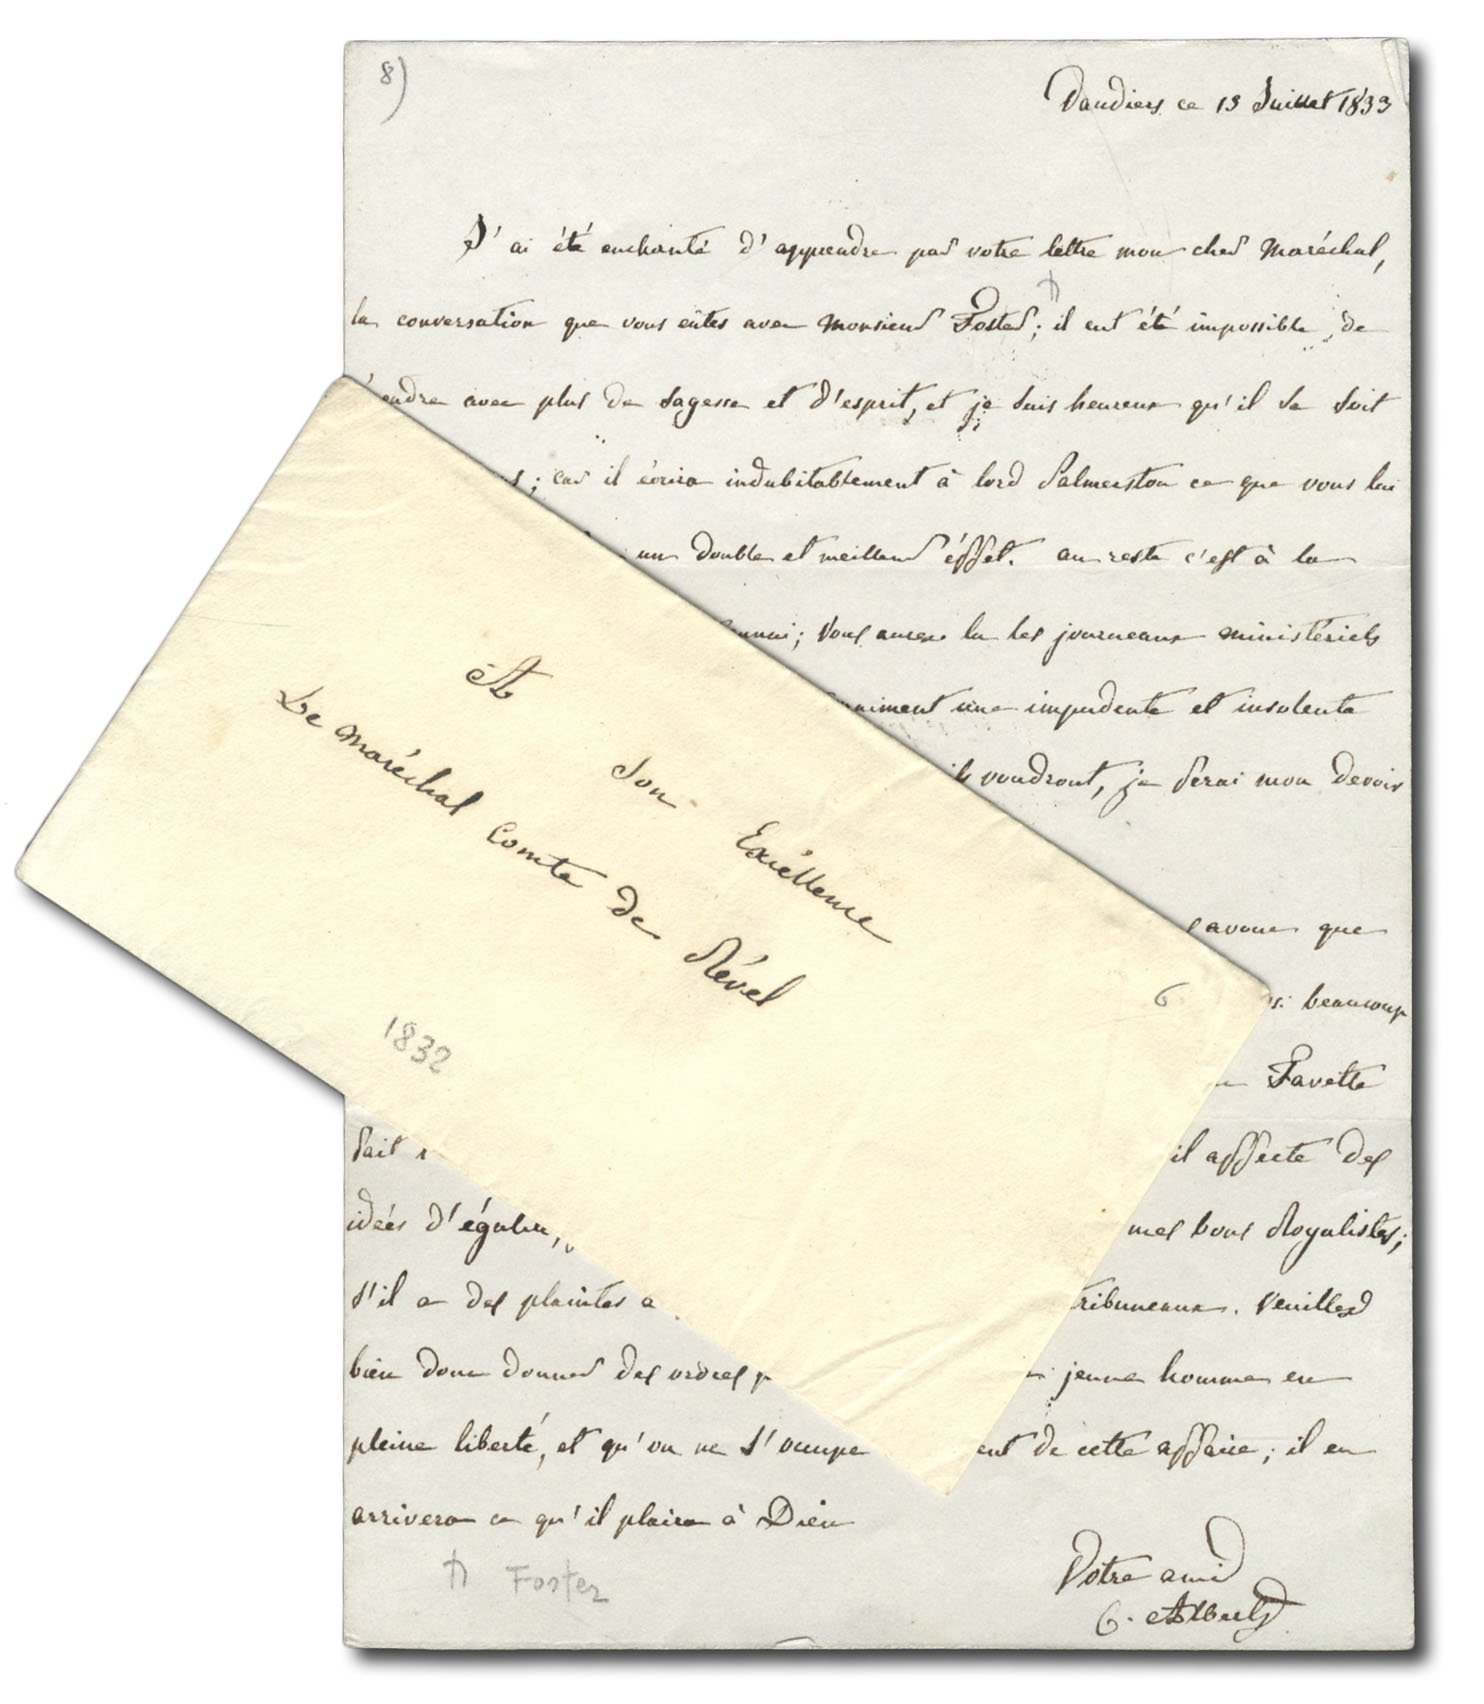 8)
Vaudiers ce 13 Juillet 1833
J'ai été enchanté d'apprendre par votre lettre mon cher Maréchal,
la conversation que vous eûtes avec Monsieur Foster; il eut été impossible de
endre avec plus de sagesse et d'esprit, et je suis heureux qu'il se soit
; car il écrira indubitablement à lord Palmerston ce que vous lui
un double et meilleur éffet. au reste c'est à la
; Vous aurez lu les journeaux ministériels
une impudente et insolente
ils voudront, je ferai mon devoir
avoue que
beaucoup
Favette
fait
il affecte des
idées d'égalité,
mes bons Royalistes;
s'il a des plaintes a
tribuneaux. Veuilles
bien donc donner des ordres p
jeune homme en
pleine liberté, et qu'on ne s'occupe
ent de cette affaire; il en
arrivera ce qu'il plaira à Dieu
Votre ami
C. Albert
Foster
A
Son Exéllence
Le Maréchal Comte de Rével
1832
6